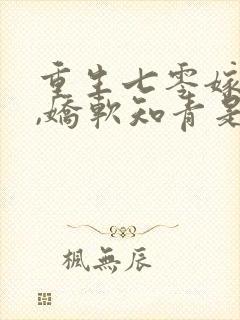 重生七零嫁
,嬌軟知青是
楓無辰